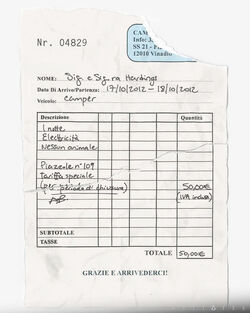 Nr. 04829
CAM
Info: 3
SS 21 -
12010 Vinadio
NOME: Sig. e Sig.ra Hastings
Data Di Arrivo/Partenza: 17/10/2012 - 18/10/2012
Veicolo: Camper
Descrizione Quantità
1 notte
Elettricità
Nessun animale
Piazzole n° 109
Tariffa speciale
(per periodo di chiusura) 50,00€
(IVA inclusa)
SUBTOTALE
TASSE
TOTALE 50,00€
GRAZIE E ARRIVEDERCI!